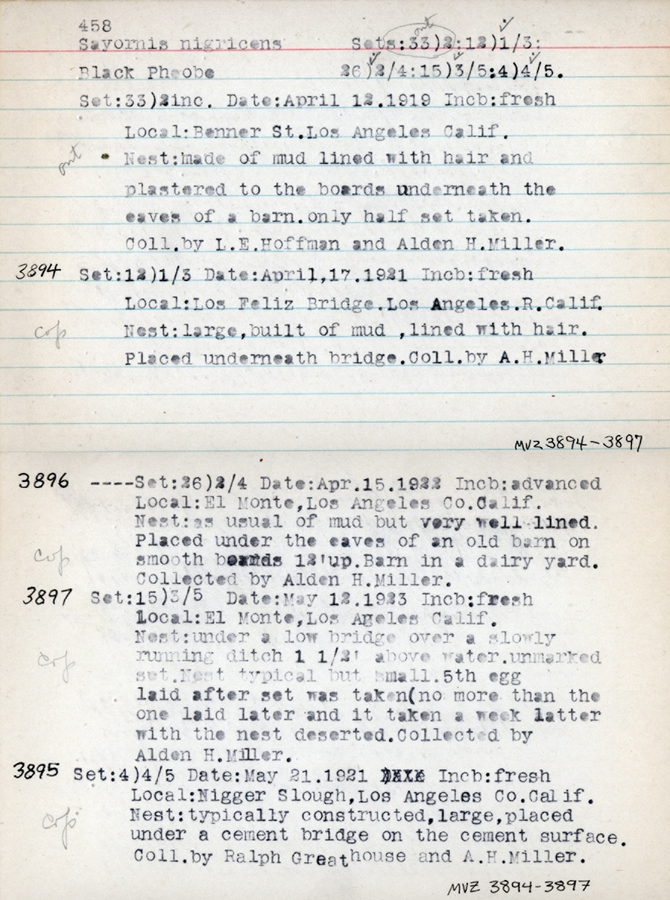 458
Sayornis nigricens Sets:33)2:12)1/3:
out
Black Pheobe 26)2/4:15)3/5:4)4/5.
Set:33)2inc. Date:April 12.1919 Incb:fresh
Local:Benner St.Los Angeles Calif.
out Nest:made of mud lined with hair and
plastered to the boards underneath the
eaves of a barn.only half set taken.
Coll.by L.E.Hoffman and Alden H.Miller.
3894 Set:12)1/3 Date:April,17.1921 Incb:fresh
Local:Los Feliz Bridge.Los Angeles.R.Calif.
cop Nest:large,built of mud ,lined with hair.
Placed underneath bridge.Coll.by A.H.Miller
MVZ 3894-3897
3896 ----Set:26)2/4 Date:Apr.15.1922 Incb:advanced
Local:El Monte,Los Angeles Co.Calif.
Nest:as usual of mud but very well-lined.
Placed under the eaves of an old barn on
cop smooth boards 12'up.Barn in a dairy yard.
Collected by Alden H.Miller.
3897 Set:15)3/5 Date:May 12.1923 Incb:fresh
Local:El Monte,Los Ageles Calif.
Nest:under a low bridge over a slowly
cop running ditch 1 1/2' above water.unmarked
set.Nest typical but small.5th egg
laid after set was taken(no more than the
one laid later and it taken a week latter
with the nest deserted.Collected by
Alden H.Miller.
3895 Set:4)4/5 Date:May 21.1921 Incb:fresh
Local:Nigger Slough,Los Angeles Co.Calif.
cop Nest:typically constructed,large,placed
under a cement bridge on the cement surface.
Coll.by Ralph Greathouse and A.H.Miller.
MVZ 3894-3897